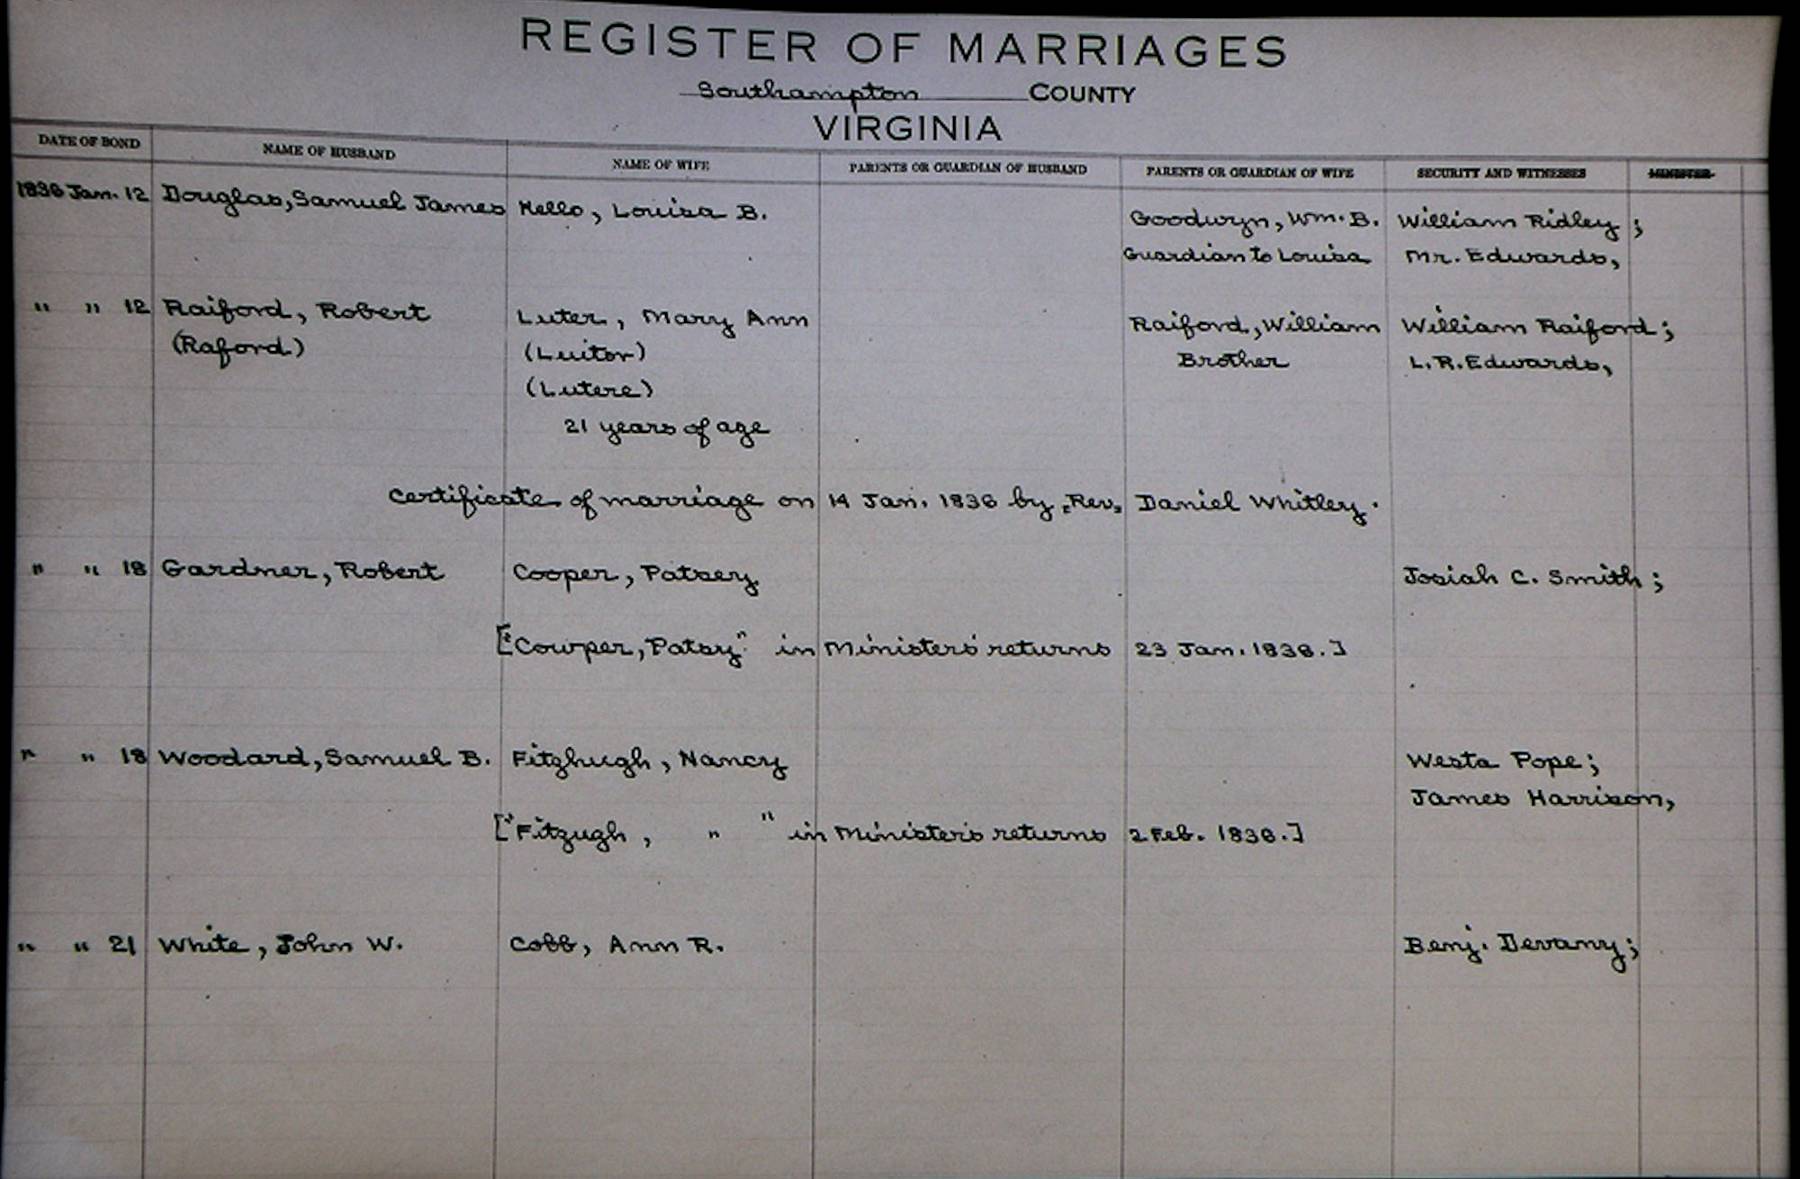 REGISTER OF MARRIAGES
Southampton COUNTY
VIRGINIA
DATE OF BOND NAME OF HUSBAND NAME OF WIFE PARENTS OR GUARDIAN OF HUSBAND PARENTS OR GUARDIAN OF WIFE SECURITY AND WITNESSES MINISTER
1836 Jan. 12 Douglas, Samuel James Nello, Louisa B. Goodwyn, Wm. B. William Ridley;
Guardian to Louisa Mr. Edwards,
" " 12 Raiford, Robert Luter, Mary Ann Raiford, William William Raiford;
(Raford) (Luitor) Brother L.R. Edwards,
(Lutere)
21 years of age
Certificate of marriage on 14 Jan. 1836 by "Rev" Daniel Whitley.
" " 18 Gardner, Robert Cooper, Patsey Josiah C. Smith;
["Cowper, Patsy" in Ministers' returns 23 Jan. 1836.]
" " 18 Woodard, Samuel B. Fitzhugh, Nancy Westa Pope;
James Harrison,
["Fitzugh, " " in Minister's returns 2 Feb. 1836.]
" " 21 White, John W. Cobb, Ann R. Benj. Devany;